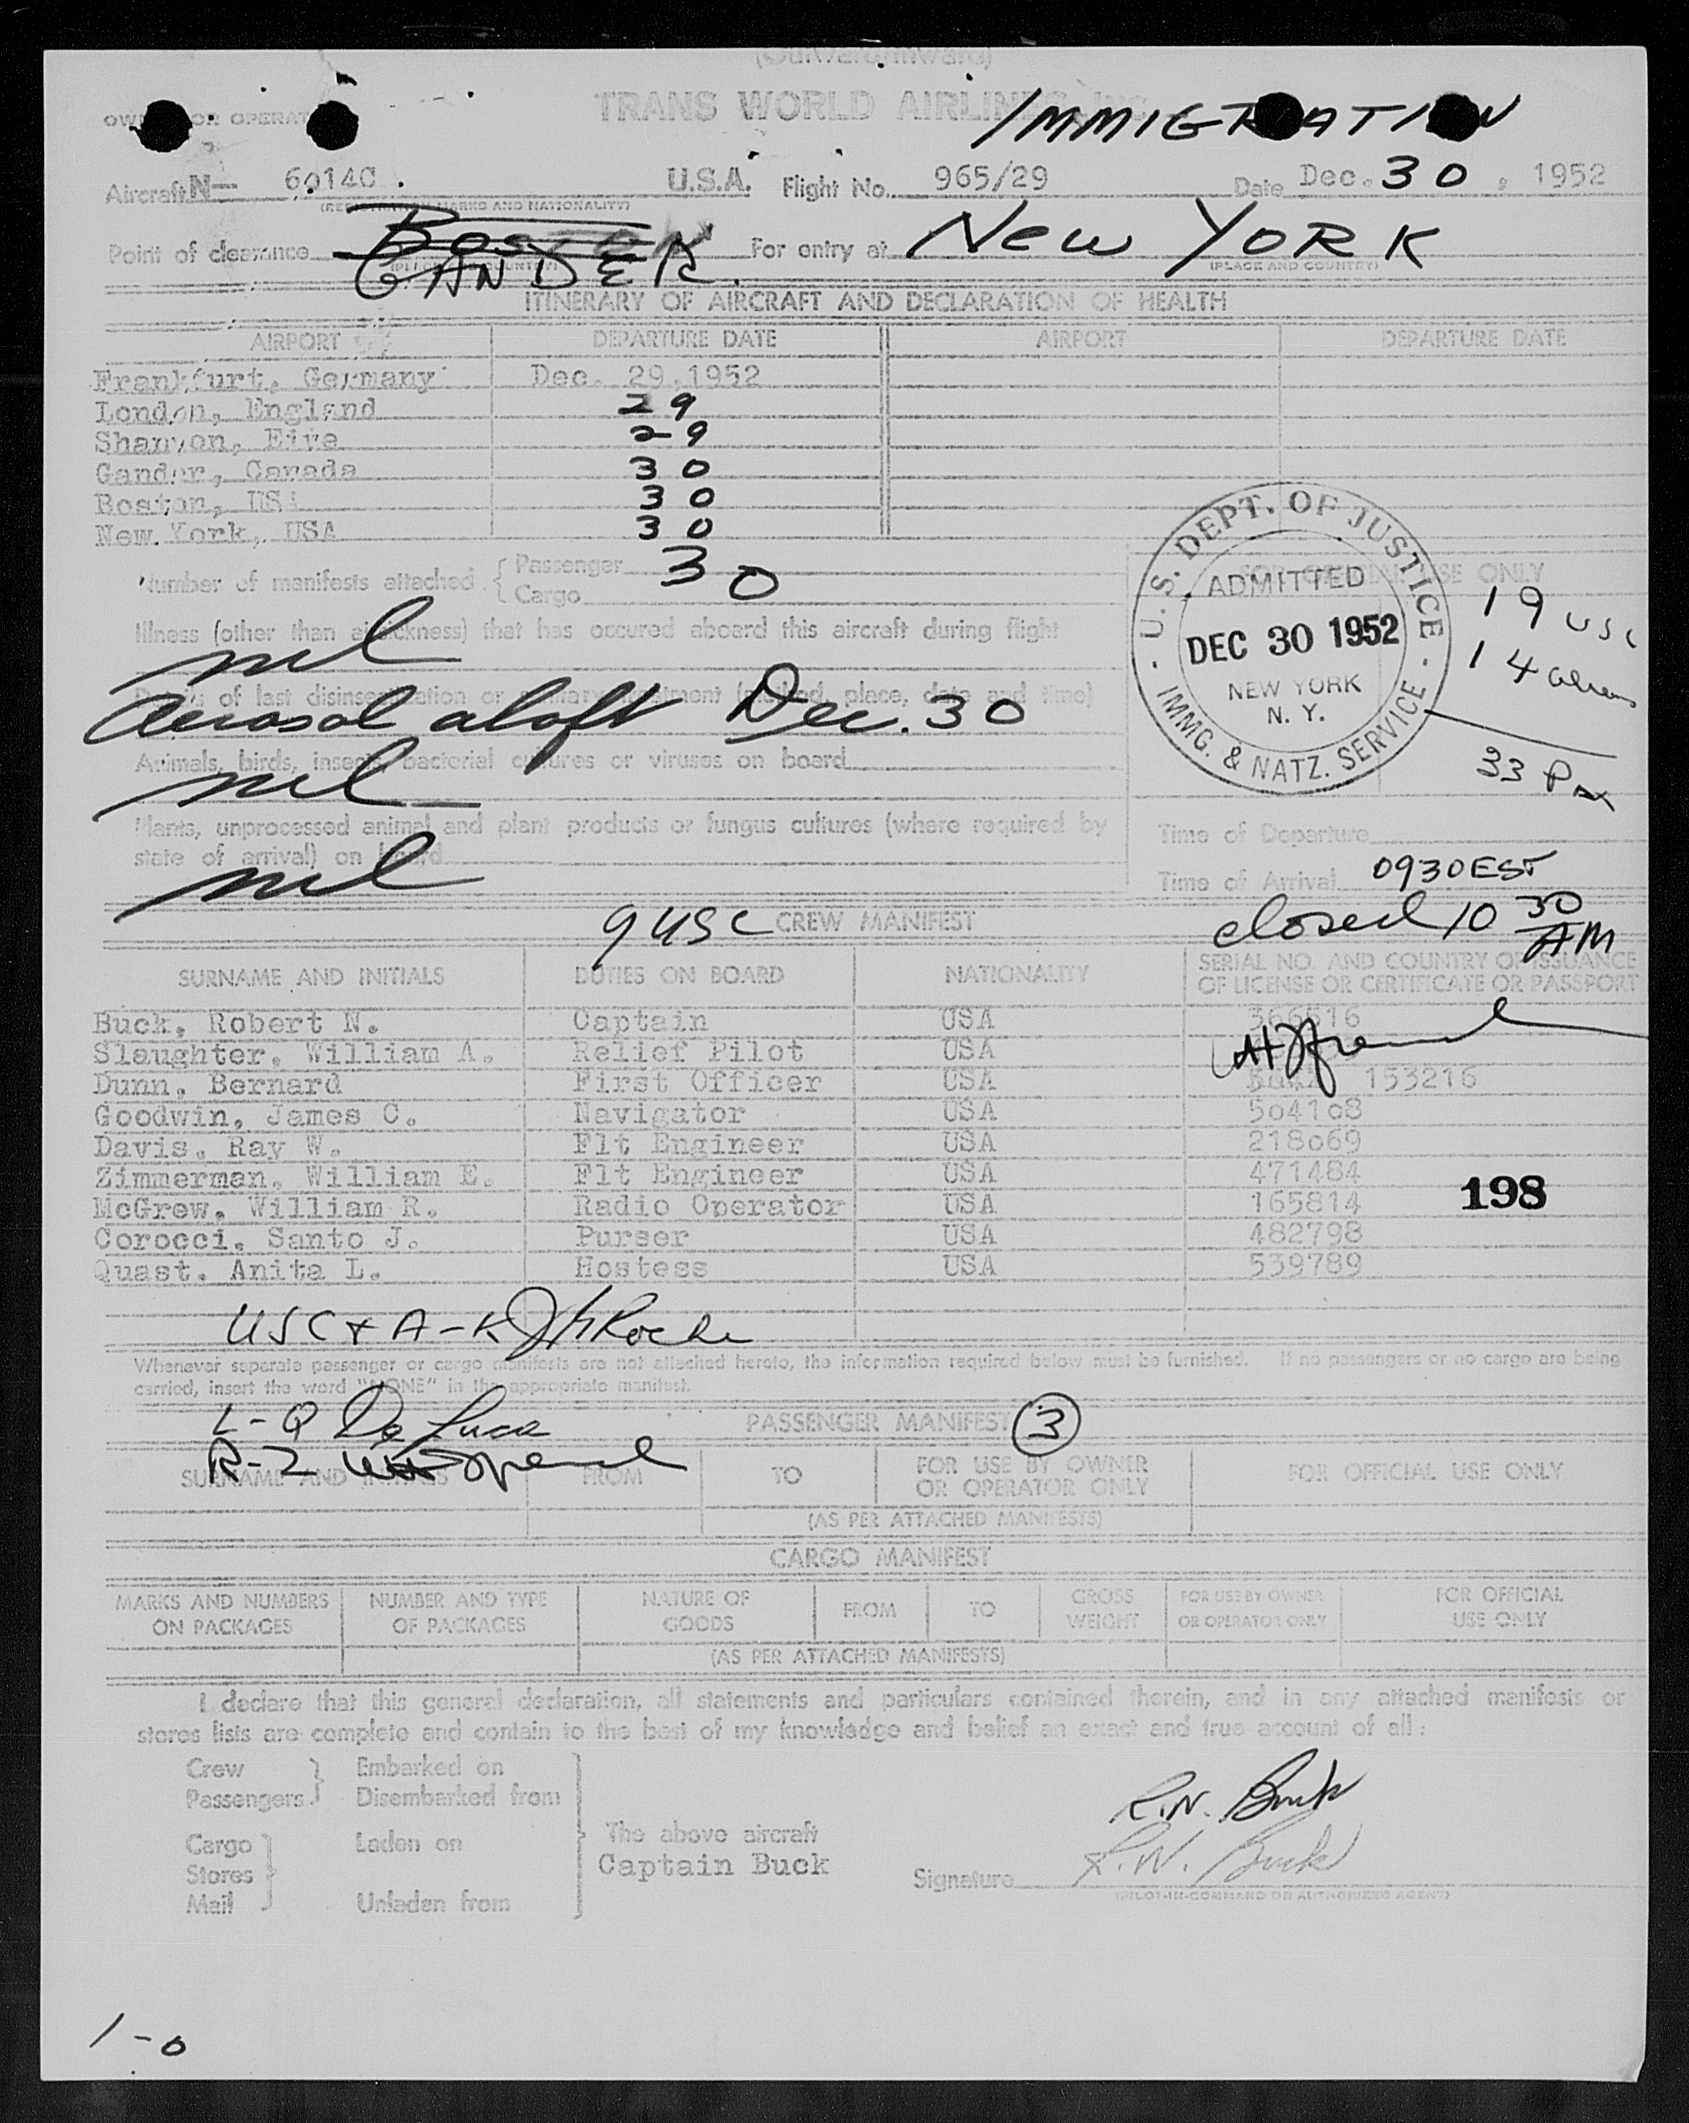 (Outward-Inward)
TRANS WORLD AIRLINES, INC.
IMMIGRATION
OWNER OR OPERATOR
Aircraft N— 6014C. U.S.A. Flight No. 965/29 Date Dec. 30, 1952
(REGISTRATION MARKS AND NATIONALITY)
Point of clearance Boston GANDER. For entry at New YORK
(PLACE AND COUNTRY) (PLACE AND COUNTRY)
ITINERARY OF AIRCRAFT AND DECLARATION OF HEALTH
AIRPORT DEPARTURE DATE AIRPORT DEPARTURE DATE
Frankfurt, Germany Dec. 29,1952
London, England 29
Shannon, Eire 29
Gander, Canada 30
Boston, USA 30
New York, USA 30
Number of manifests attached { Passenger 3
Cargo 0
FOR OFFICIAL USE ONLY
U.S. DEPT. OF JUSTICE
ADMITTED
DEC 30 1952
NEW YORK
N. Y.
IMMG. & NATZ. SERVICE
19 USC
14 aliens
33 Pax
Illness (other than airsickness) that has occured aboard this aircraft during flight
nil
Details of last disinsectization or sanitary treatment (method, place, date and time)
Aerosol aloft Dec. 30
Animals, birds, insects, bacterial cultures or viruses on board
nil
Plants, unprocessed animal and plant products or fungus cultures (where required by
state of arrival) on board
nil
Time of Departure
Time of Arrival 0930EST
closed 10 30 AM
9 USC CREW MANIFEST
SURNAME AND INITIALS DUTIES ON BOARD NATIONALITY SERIAL NO. AND COUNTRY OF ISSUANCE
OF LICENSE OR CERTIFICATE OR PASSPORT
Buck, Robert N. Captain USA 366516
Slaughter, William A. Relief Pilot USA
Dunn, Bernard First Officer USA 153216
Goodwin, James C. Navigator USA 504108
Davis, Ray W. Flt Engineer USA 218069
Zimmerman, William E. Flt Engineer USA 471484
McGrew, William R. Radio Operator USA 165814
198
Corocci, Santo J. Purser USA 482798
Quast, Anita L. Hostess USA 539789
USC + A-K J H Roche
Whenever separate passenger or cargo manifests are not attached hereto, the information required below must be furnished. If no passengers or no cargo are being
carried, insert the word "NONE" in the appropriate manifest.
L-Q De Luca
PASSENGER MANIFEST 3
R-Z
SURNAME AND INITIALS FROM TO FOR USE BY OWNER
OR OPERATOR ONLY FOR OFFICIAL USE ONLY
(AS PER ATTACHED MANIFESTS)
CARGO MANIFEST
MARKS AND NUMBERS
ON PACKAGES NUMBER AND TYPE
OF PACKAGES NATURE OF
GOODS FROM TO GROSS
WEIGHT FOR USE BY OWNER
OR OPERATOR ONLY FOR OFFICIAL
USE ONLY
(AS PER ATTACHED MANIFESTS)
I declare that this general declaration, all statements and particulars contained therein, and in any attached manifests or
stores lists are complete and contain to the best of my knowledge and belief an exact and true account of all:
Crew
Passengers } Embarked on
Disembarked from
Cargo
Stores
Mail } Laden on
Unladen from
The above aircraft
Captain Buck
R.N. Buck
Signature R.N. Buck
(PILOT-IN-COMMAND OR AUTHORIZED AGENT)
1-0